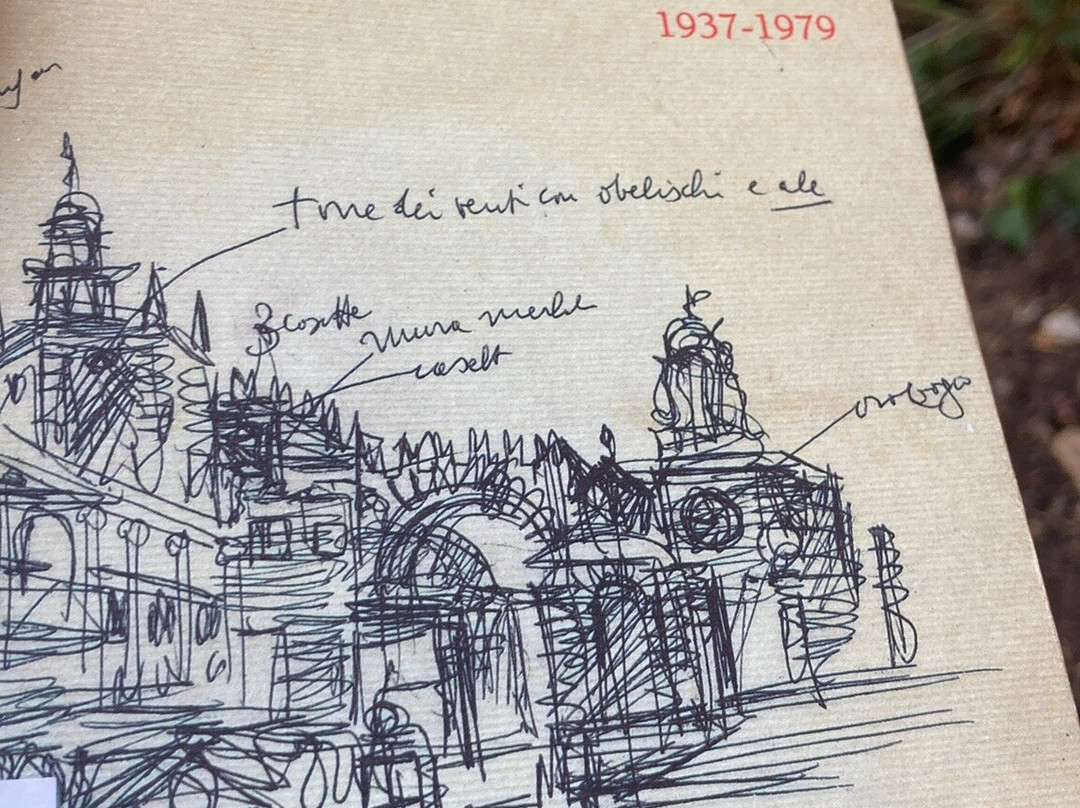 1937-1979
torre dei venti con obelischi e ale
3 casette
mura merlate
casette
orologio